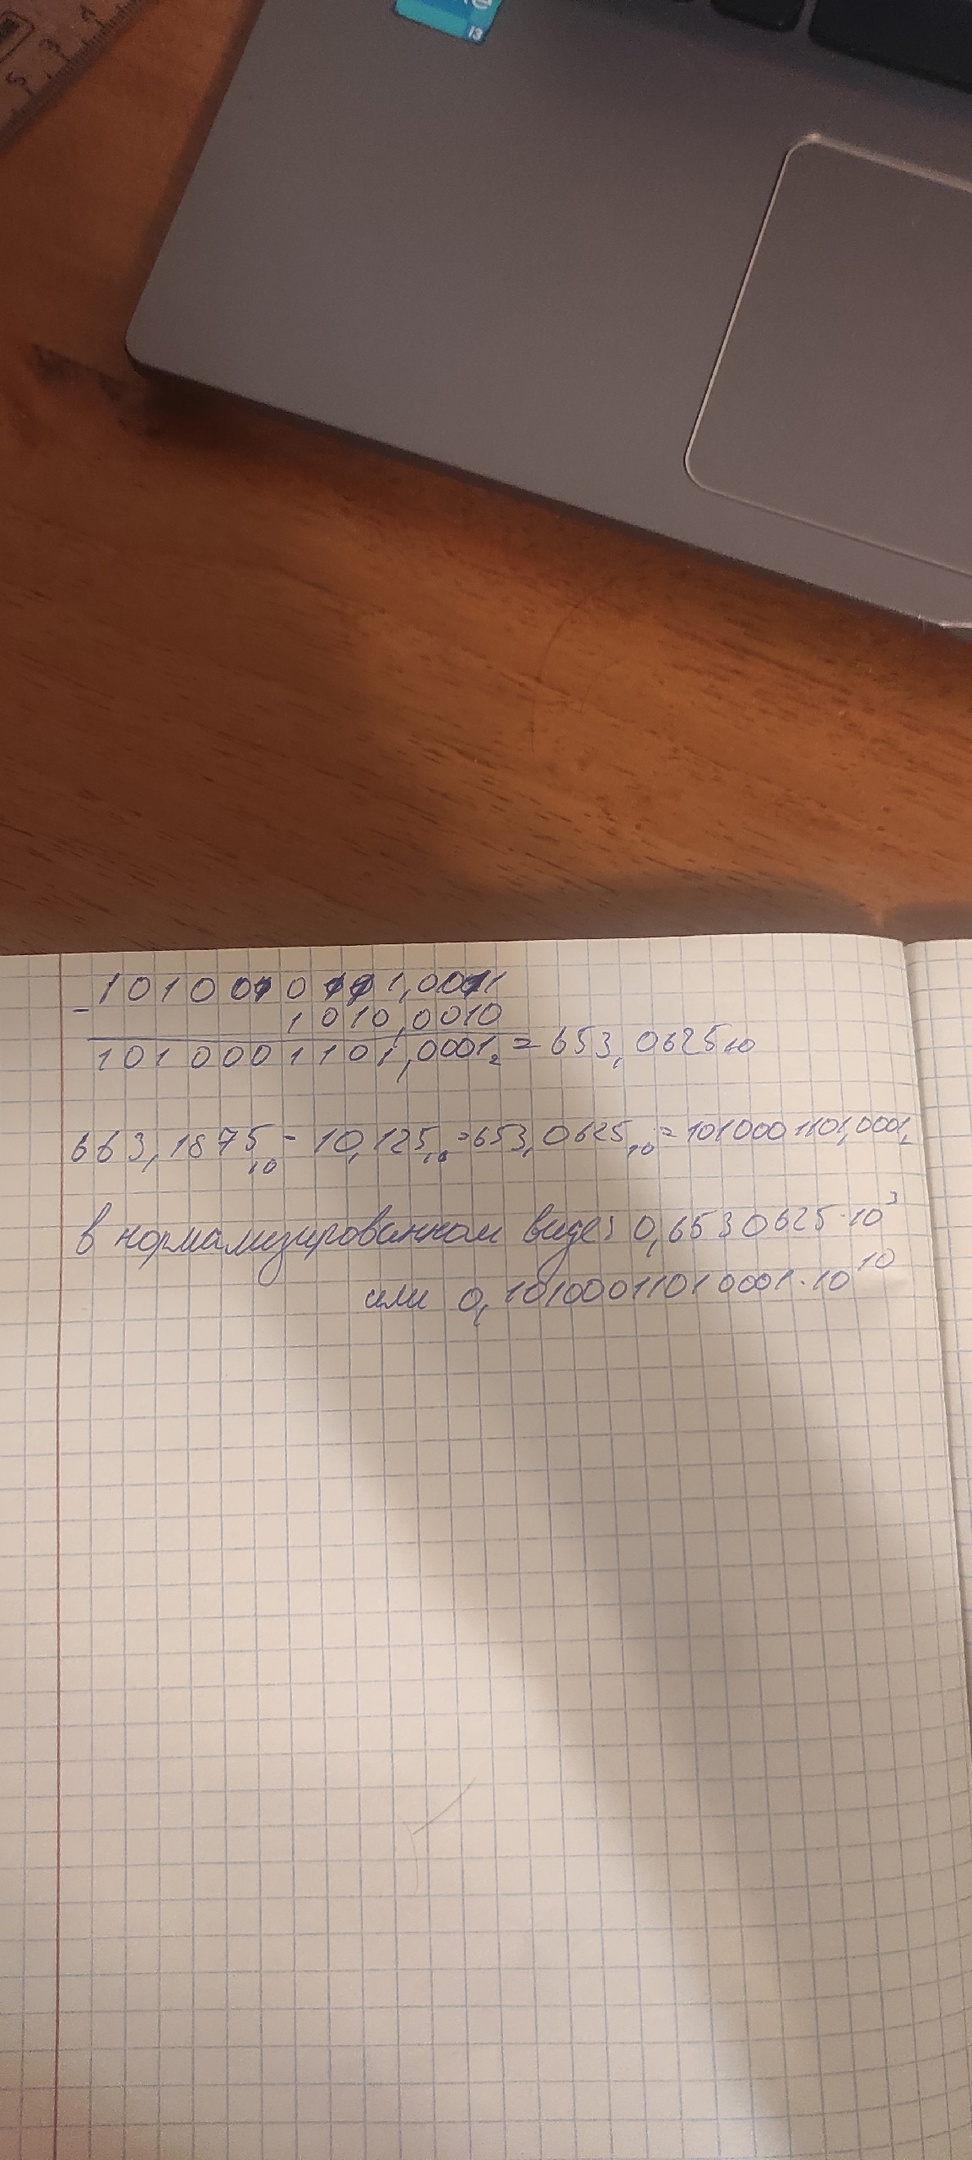 i3
5
3
1010010111,0011
- 1010,0010
1010001101,0001₂ = 653,0625₁₀
663,1875₁₀ - 10,125₁₀ = 653,0625₁₀ = 1010001101,0001₂
в нормализированном виде: 0,6530625·10³
или 0,10100011010001·10¹⁰